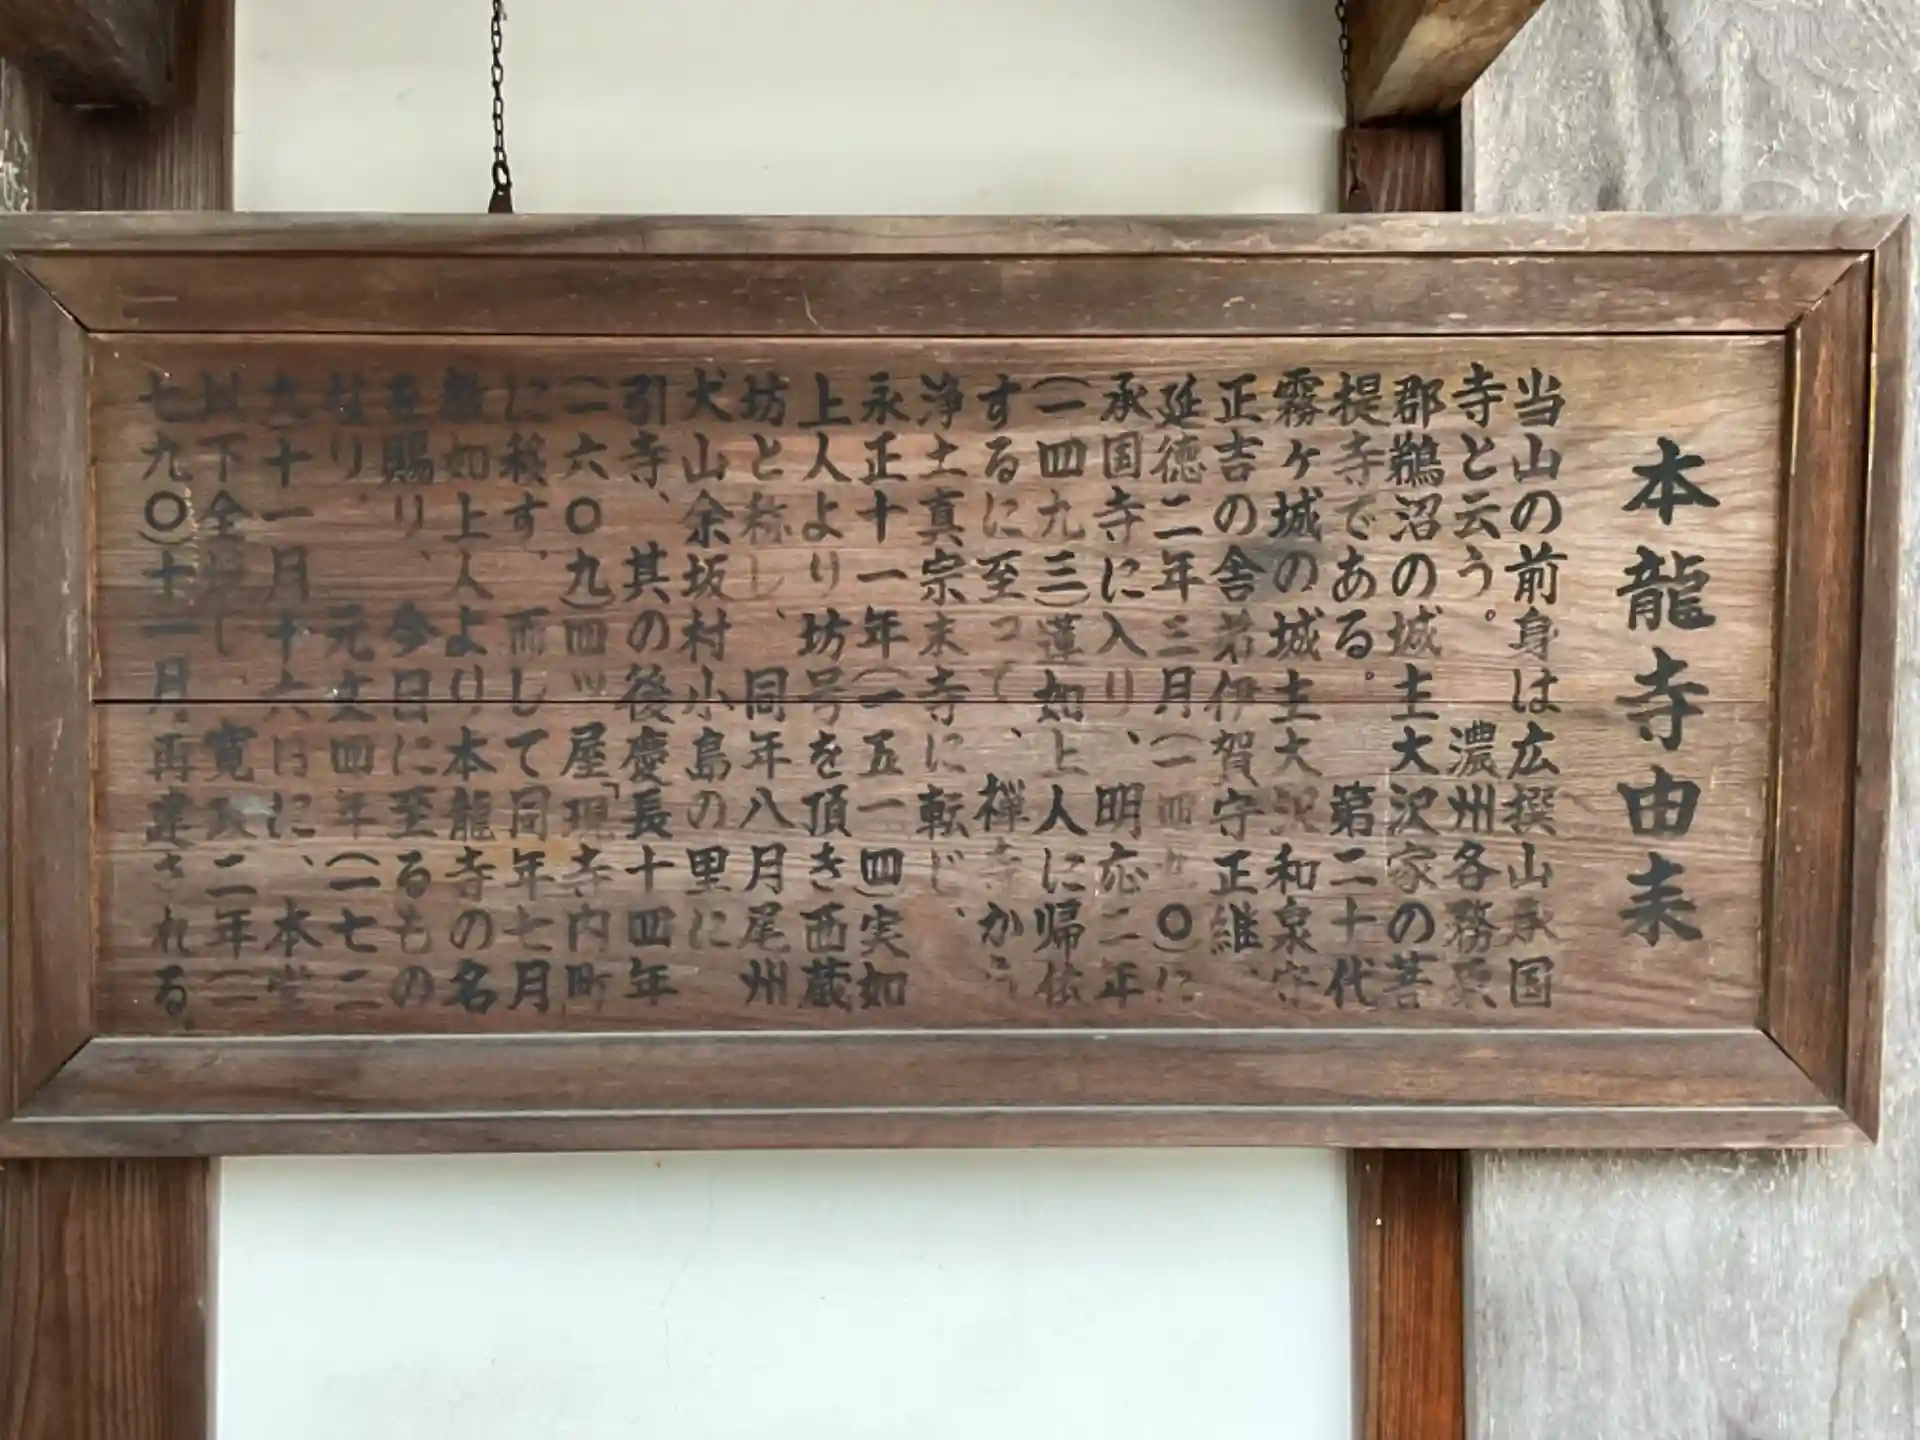 本龍寺由来
当山の前身は広撰山承国
寺と云う。濃州各務
郡鵜沼の城主大沢家の菩
提寺である。第二十代
霧ヶ城の城主大沢和泉守
正吉の舎弟伊賀守正継、
延徳二年三月(一四九〇)に
承国寺に入り、明応二年
(一四九三)蓮如上人に帰依
するに至って、禅寺から
浄土真宗末寺に転じ、
永正十一年(一五一四)実如
上人より坊号を頂き西蔵
坊と称し、同年八月尾州
犬山余坂村小島の里に
引寺、其の後慶長十四年
(一六〇九)四ッ屋「現寺内町
に移す、而して同年七月
如上人より本龍寺の名
を賜り、今日に至るもの
なり。元文四年(一七三
九)十一月十六日に、本堂
以下全焼し寛政二年(一
七九〇)十一月再建される。